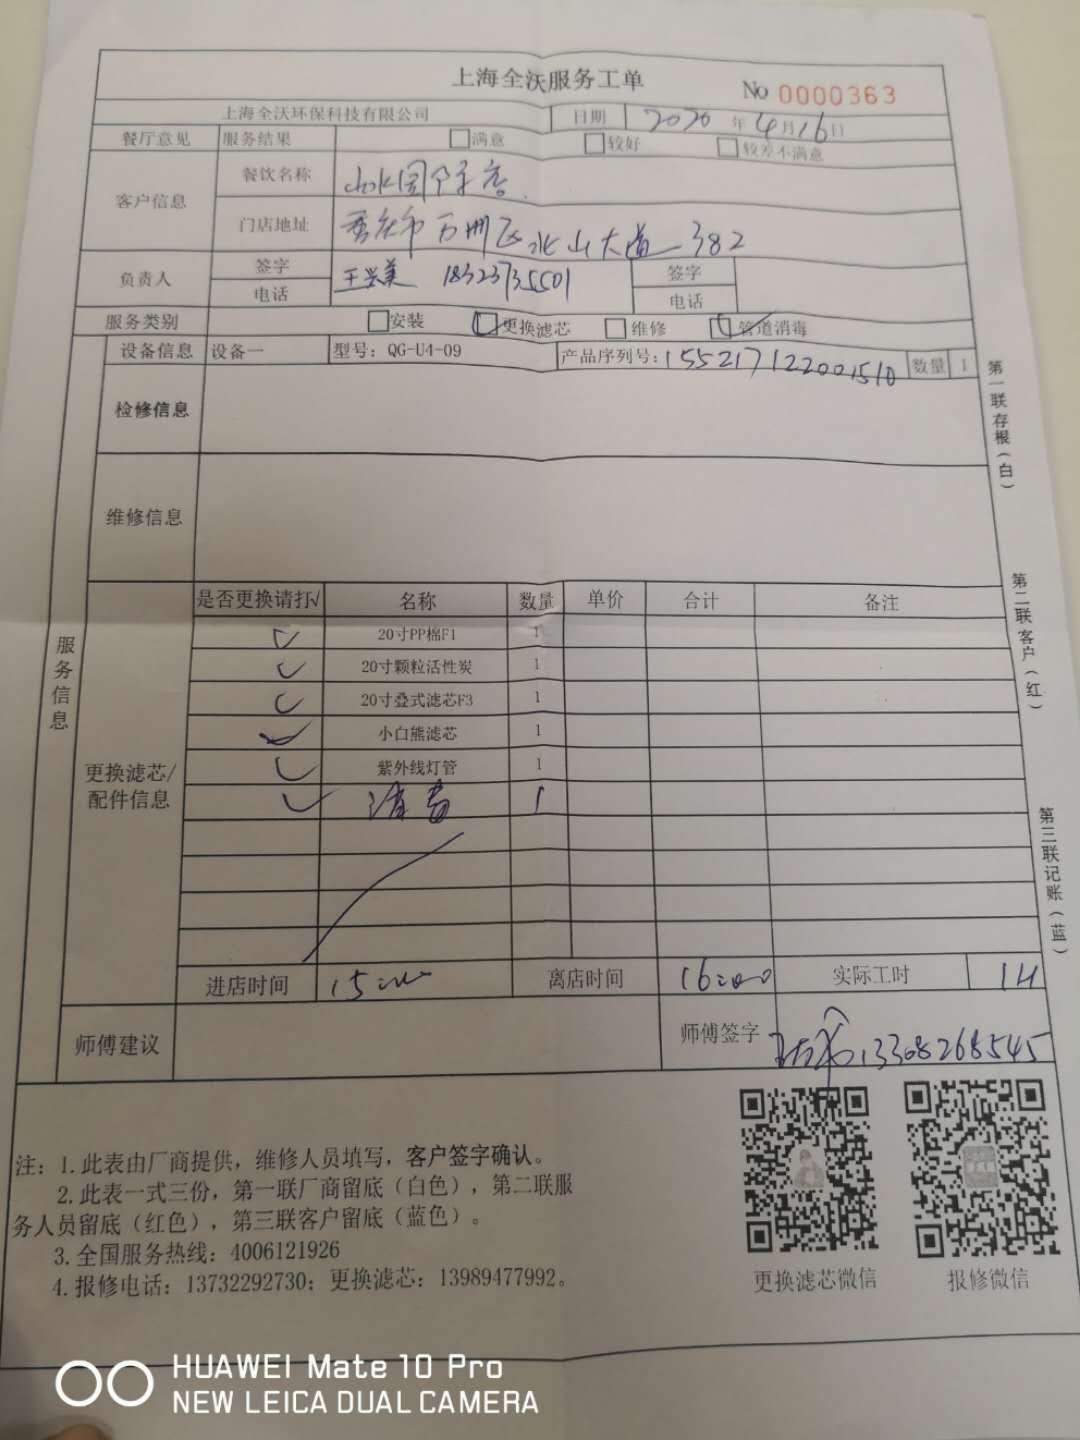 上海全沃服务工单
No 0000363
上海全沃环保科技有限公司 日期 2020年4月16日
餐厅意见 服务结果 满意 较好 较差不满意
客户信息 餐饮名称
门店地址 重庆市万州区北山大道382
负责人 签字 王兴美 签字
电话 18323735501 电话
服务类别 安装 更换滤芯 维修 管道消毒
设备信息 设备一 型号：QG-U4-09 产品序列号：155217122001510 数量 1
检修信息
维修信息
服务信息
更换滤芯/
配件信息
是否更换请打√ 名称 数量 单价 合计 备注
✓ 20寸PP棉F1 1
✓ 20寸颗粒活性炭 1
✓ 20寸叠式滤芯F3 1
✓ 小白熊滤芯 1
✓ 紫外线灯管 1
✓ 消毒 1
进店时间 15:00 离店时间 16:00 实际工时 1H
师傅建议 师傅签字 13308268545
第一联存根（白）
第二联客户（红）
第三联记账（蓝）
注：1.此表由厂商提供，维修人员填写，客户签字确认。
2.此表一式三份，第一联厂商留底（白色），第二联服
务人员留底（红色），第三联客户留底（蓝色）。
3.全国服务热线：4006121926
4.报修电话：13732292730；更换滤芯：13989477992。
更换滤芯微信 报修微信
HUAWEI Mate 10 Pro
NEW LEICA DUAL CAMERA